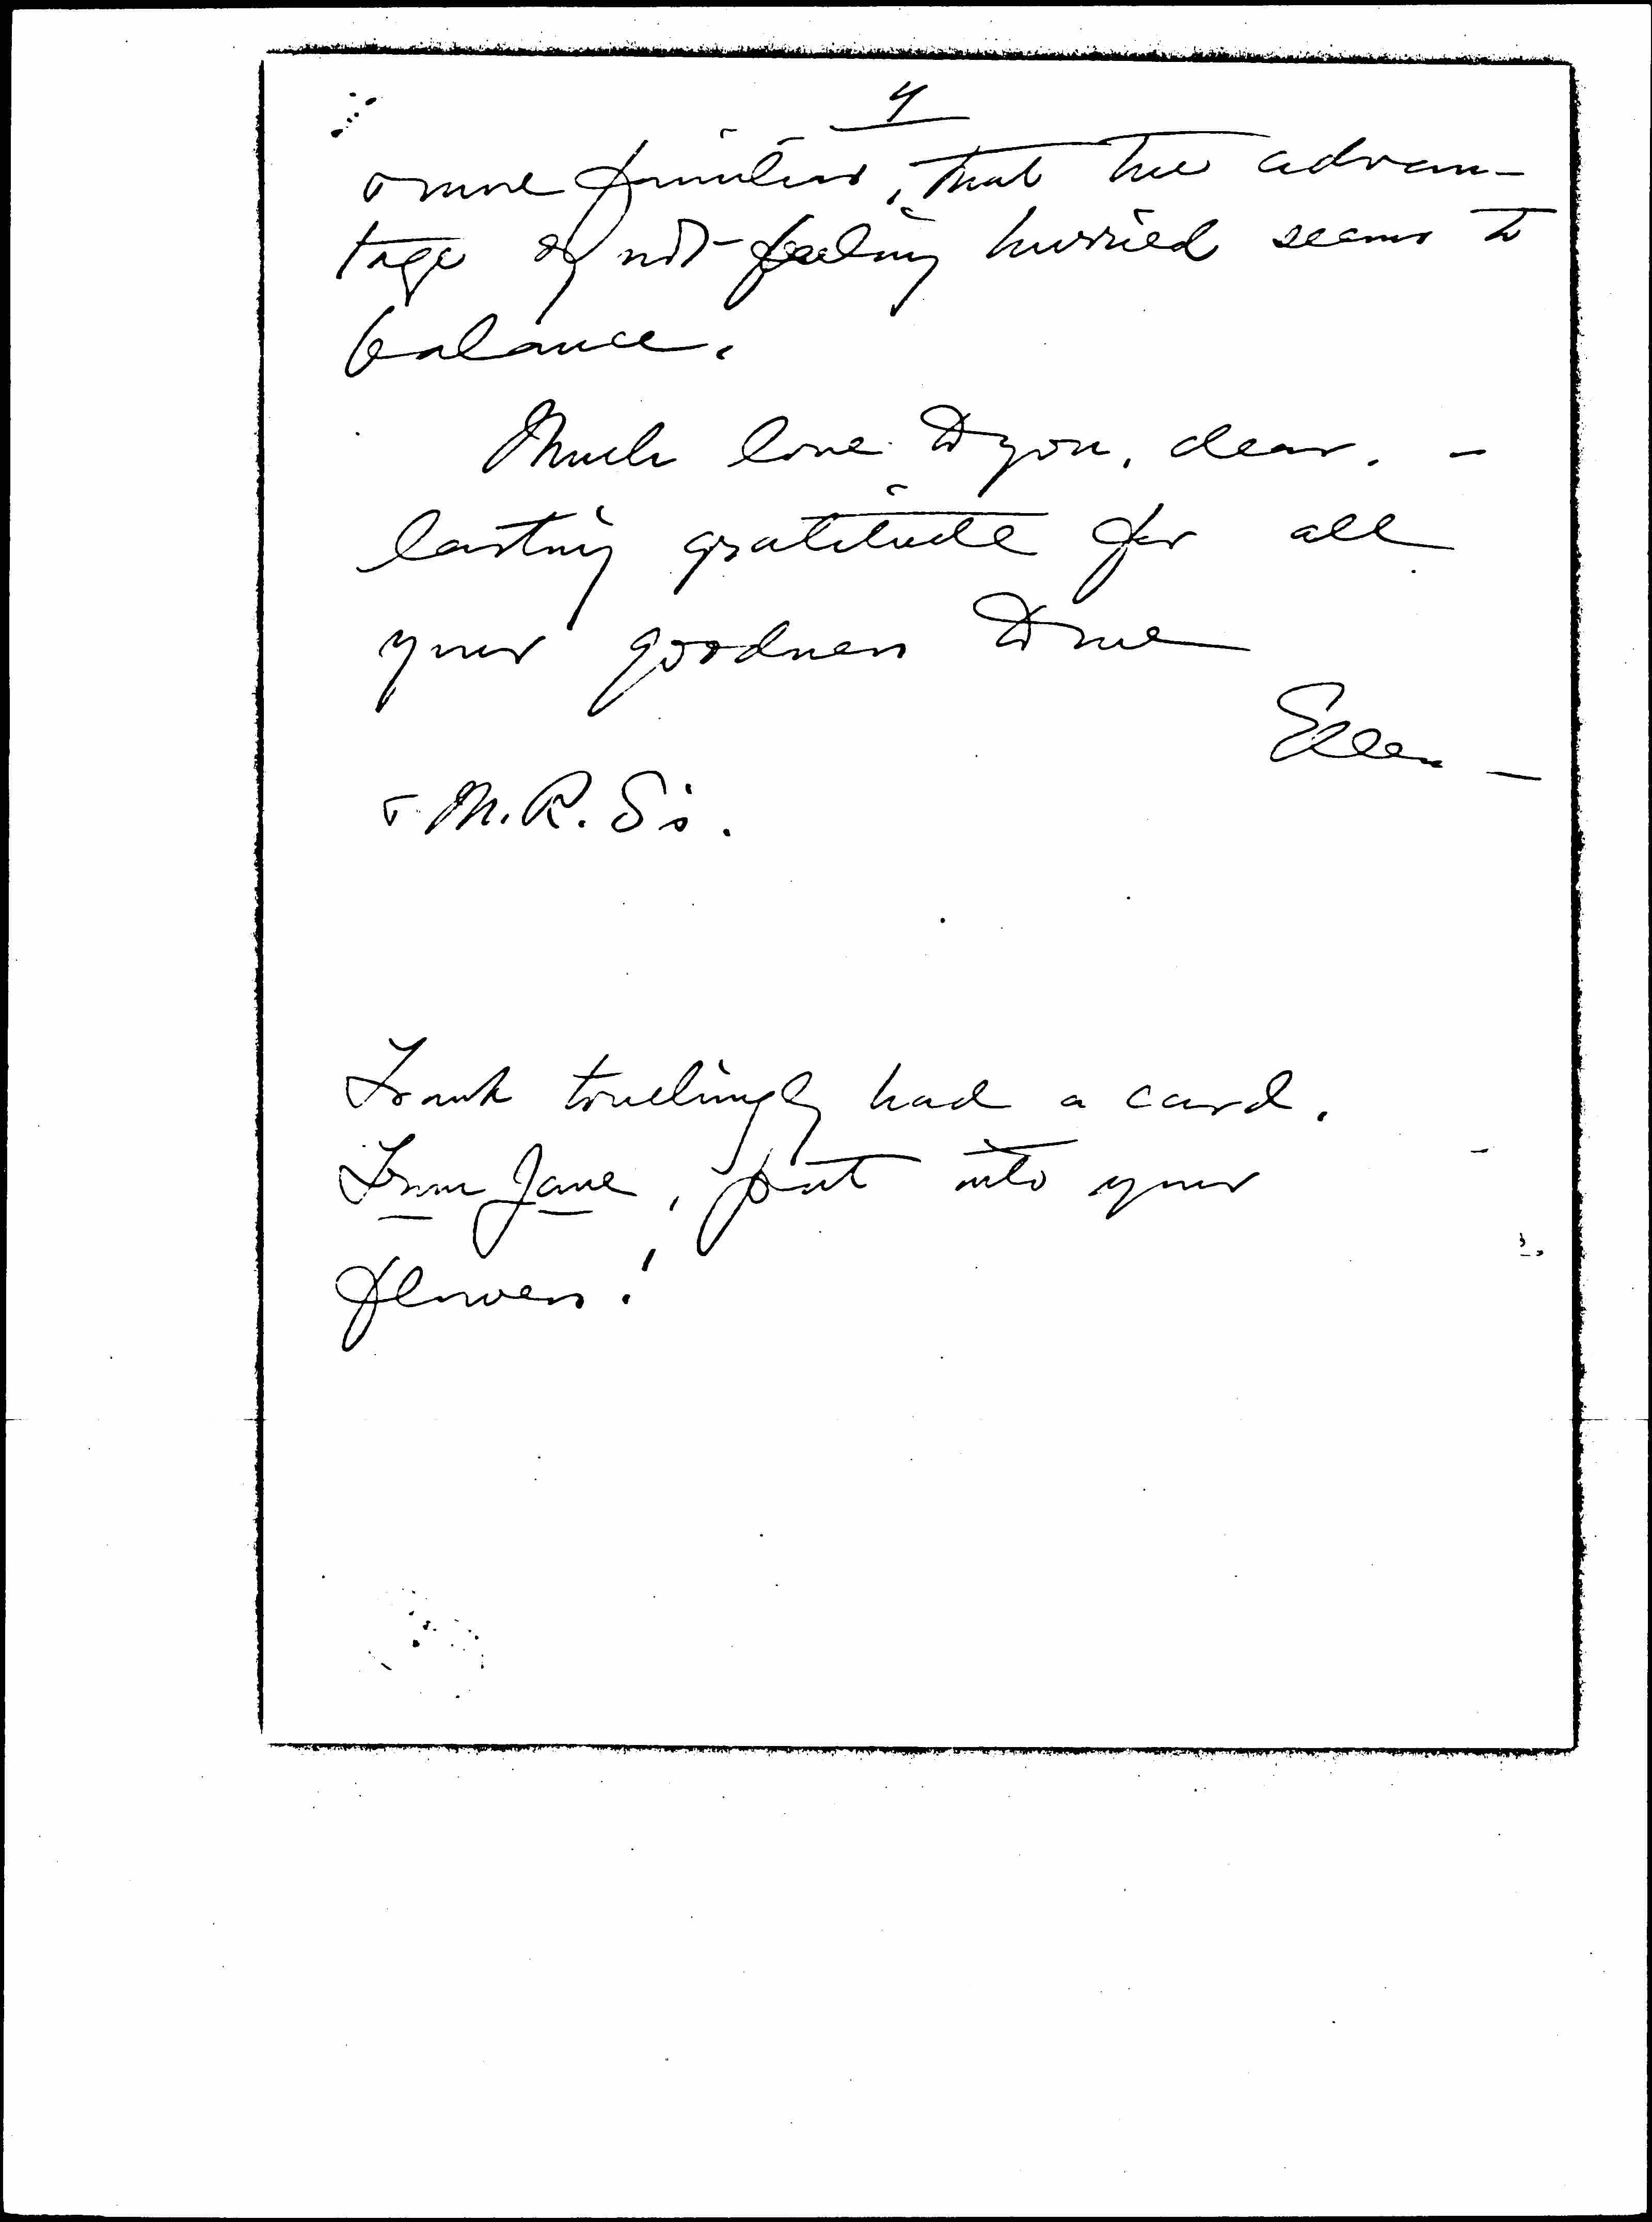 4
& more familiar, that the advan-
tage of not feeling hurried seems to
balance.
Much love to you, dear. -
lasting gratitude for all
your goodness to me
Ellen -
& M.R. S's.
Frank touchingly had a card.
From Jane, put into your
flowers!